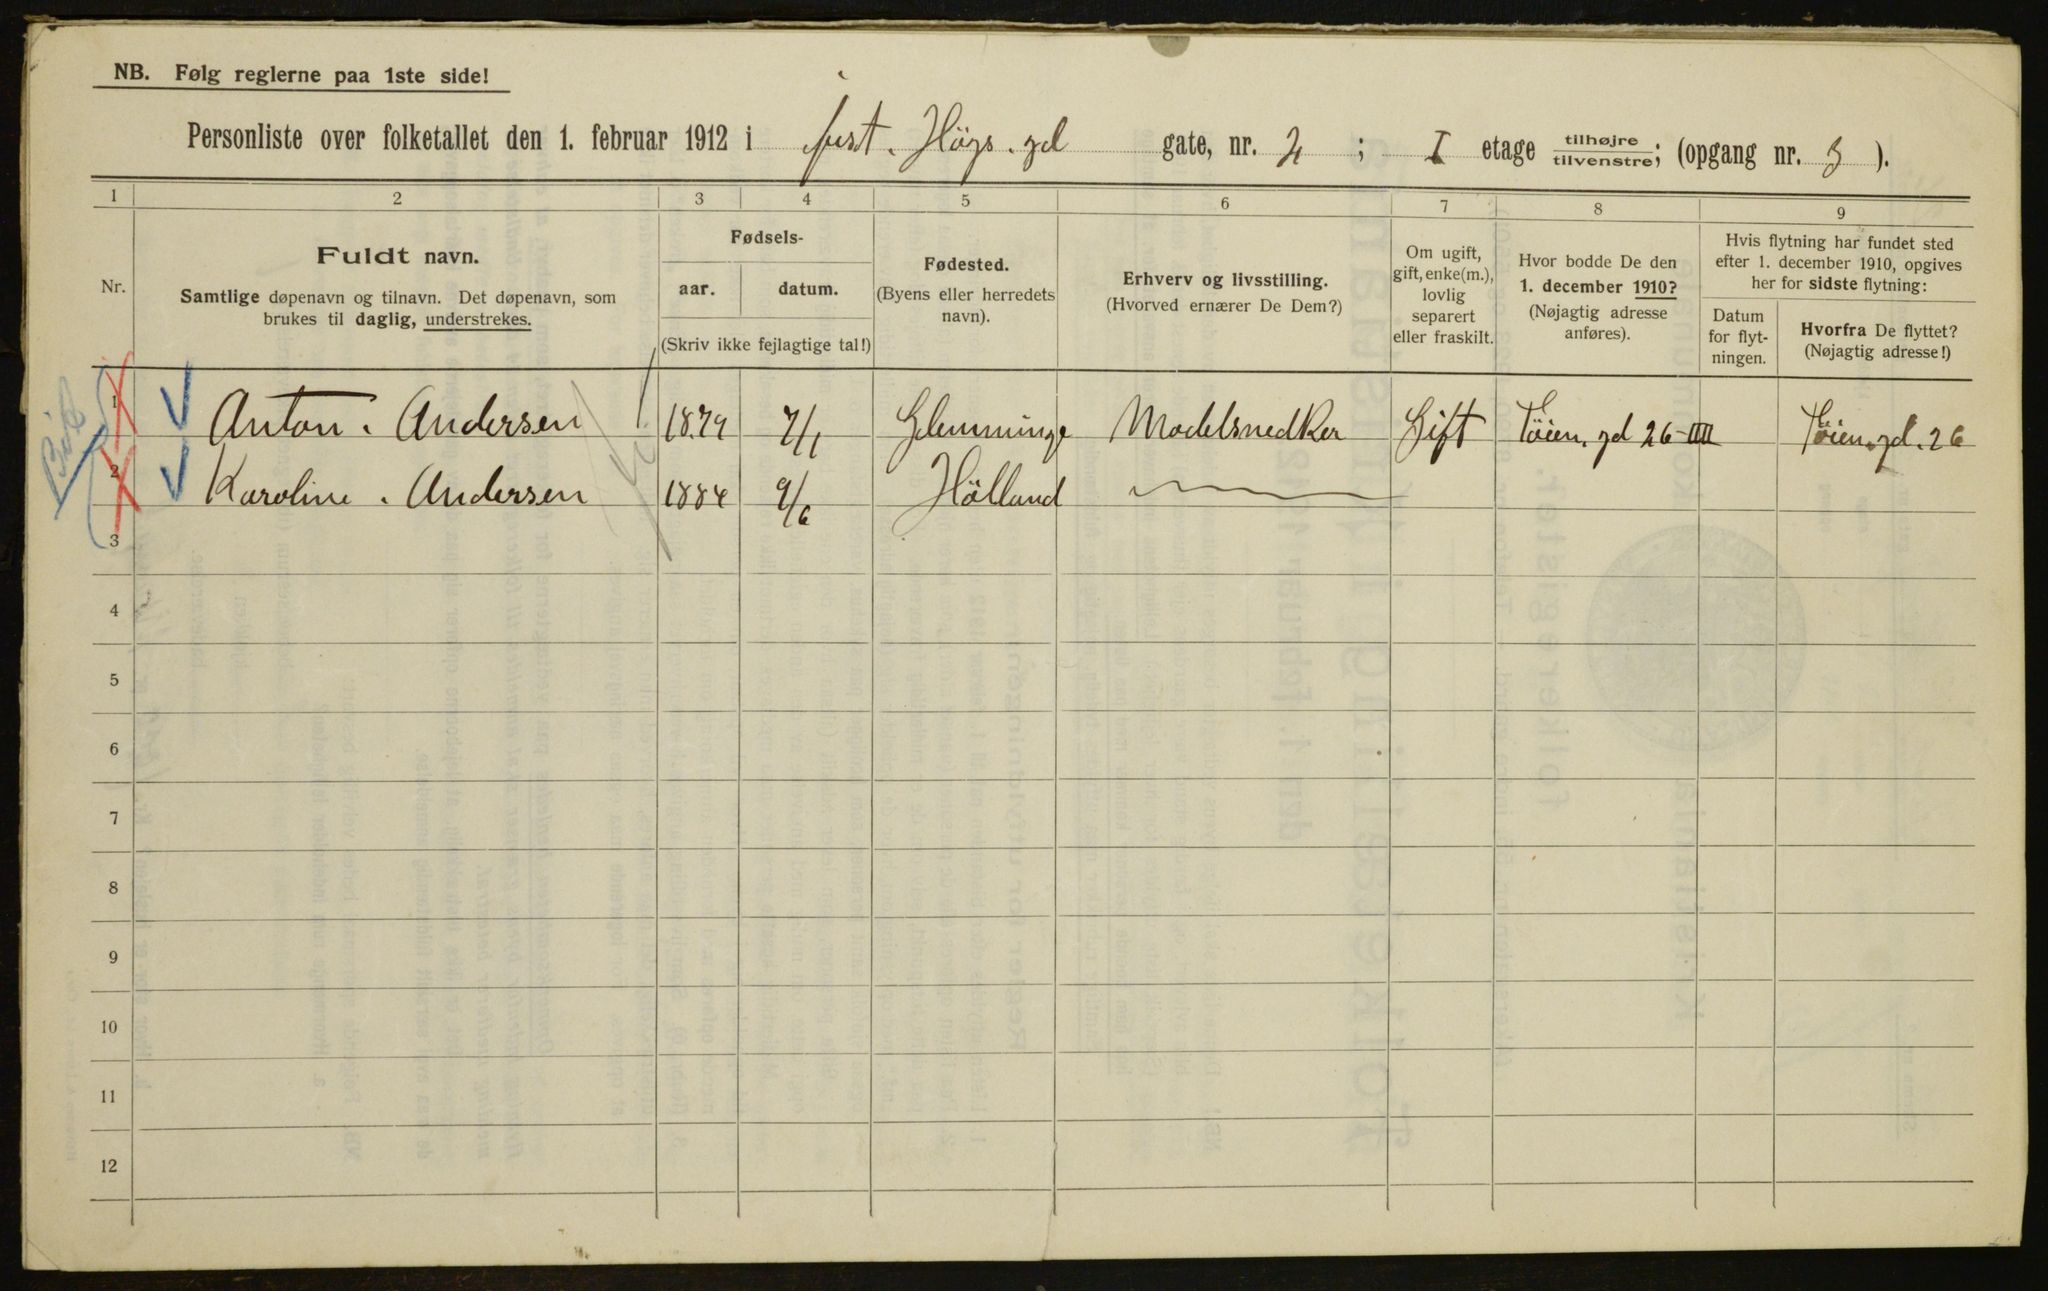 NB. Følg reglerne paa 1ste side!
Personliste over folketallet den 1. februar 1912 i just. Höys. gd gate, nr. 2 ; I etage tilhøjre/tilvenstre; (opgang nr. 3 ).
1 2 3 4 5 6 7 8 9
Nr.
Fuldt navn.
Samtlige døpenavn og tilnavn. Det døpenavn, som
brukes til daglig, understrekes.
Fødsels-
aar. datum.
(Skriv ikke fejlagtige tal!)
Fødested.
(Byens eller herredets
navn).
Erhverv og livsstilling.
(Hvorved ernærer De Dem?)
Om ugift,
gift, enke(m.),
lovlig
separert
eller fraskilt.
Hvor bodde De den
1. december 1910?
(Nøjagtig adresse
anføres).
Hvis flytning har fundet sted
efter 1. december 1910, opgives
her for sidste flytning:
Datum
for flyt-
ningen.
Hvorfra De flyttet?
(Nøjagtig adresse!)
1 Anton. Andersen 1879 7/1 Glemminge Modelsnedker Gift Töien. gd 26-IIII Töien. gd. 26
2 Karoline. Andersen 1884 9/6 Hölland
3
4
5
6
7
8
9
10
11
12